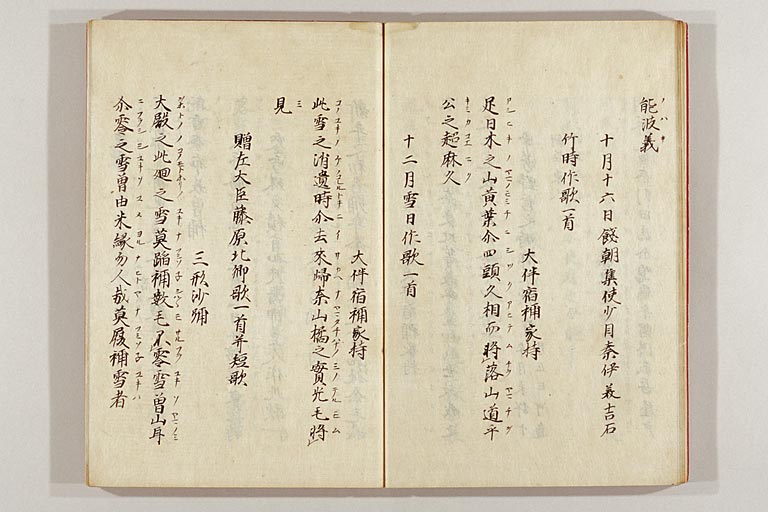 能波義
十月十六日餞朝集使少目秦伊義吉石
竹時作歌一首
大伴宿祢家持
足日木之山黄葉尓四頭久相而将落山道乎
公之超麻久
十二月雪日作歌一首
大伴宿祢家持
此雪之消遺時尓去来歸奈山橘之實光毛将
見
贈左大臣藤原北卿歌一首并短歌
三形沙弥
大殿之此廻之雪莫踏祢數毛不零雪曽山耳
尓零之雪曽由米縁勿人哉莫履祢雪者